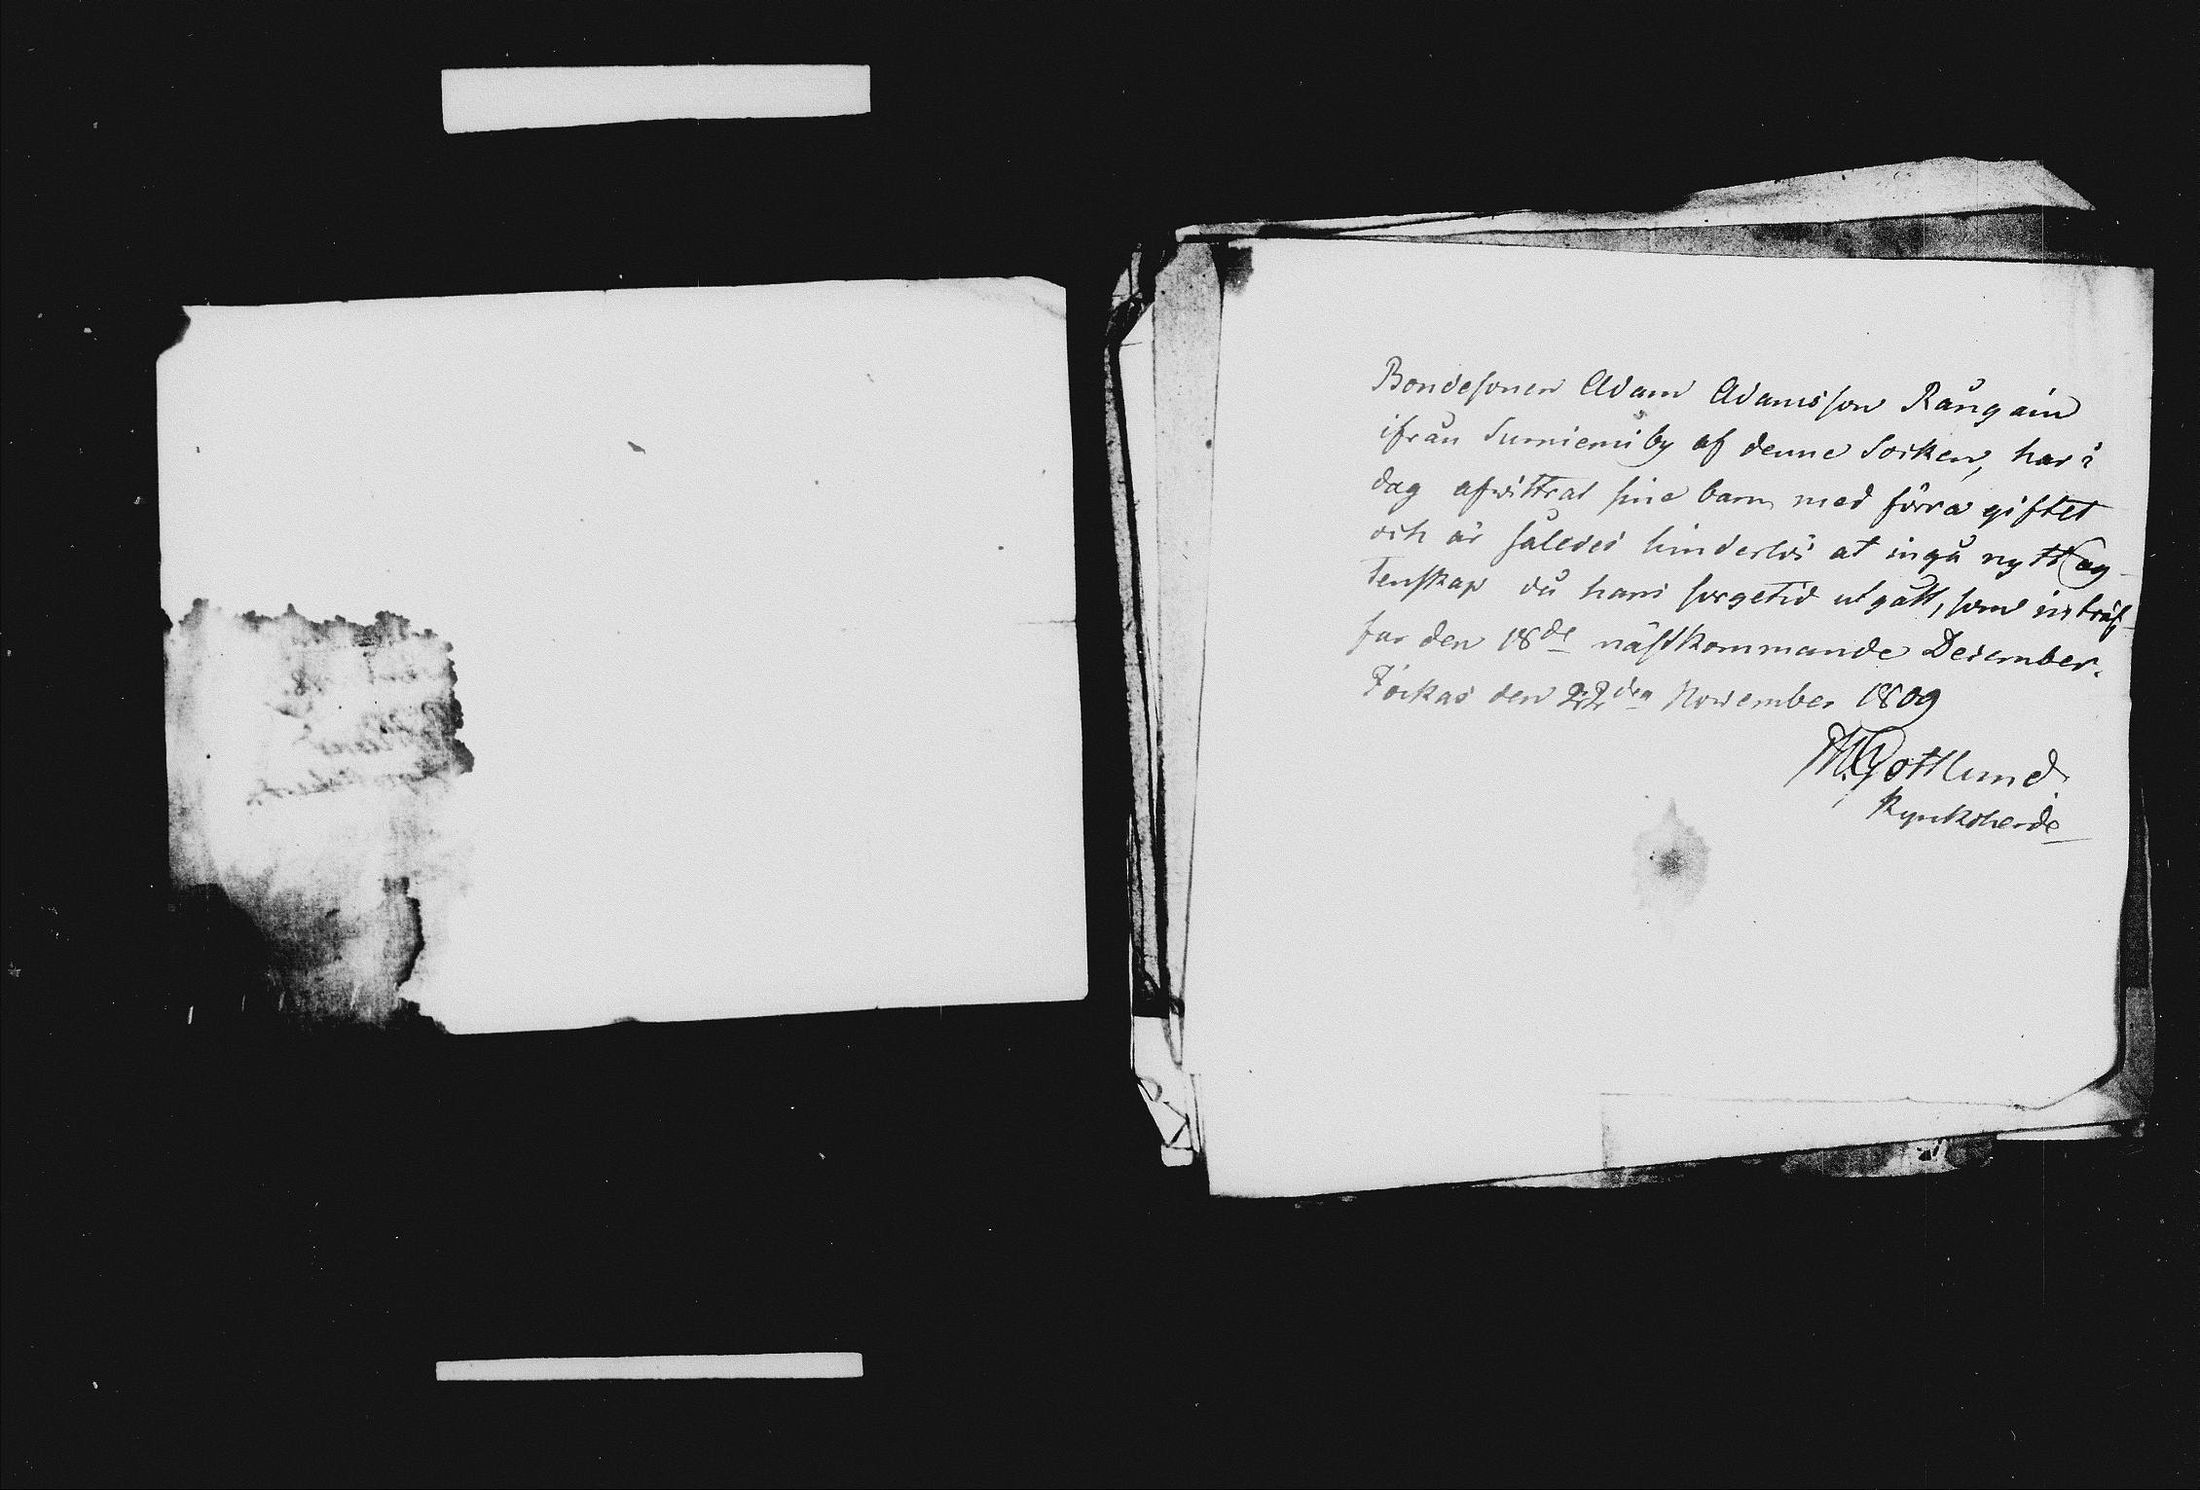 Bondesonen Adam Adamsson Rångain
ifrån Sumiemi by af denne Socken, har i
dag afvittrat sine barn med förra giftet
och är således hinderlös at ingå nytt äg-
tenskap då hans sorgetid utgått, som inträf-
far den 18de nästkommande December.
Jockas den 22den November 1809
M. Gottlund
Kyrckoherde